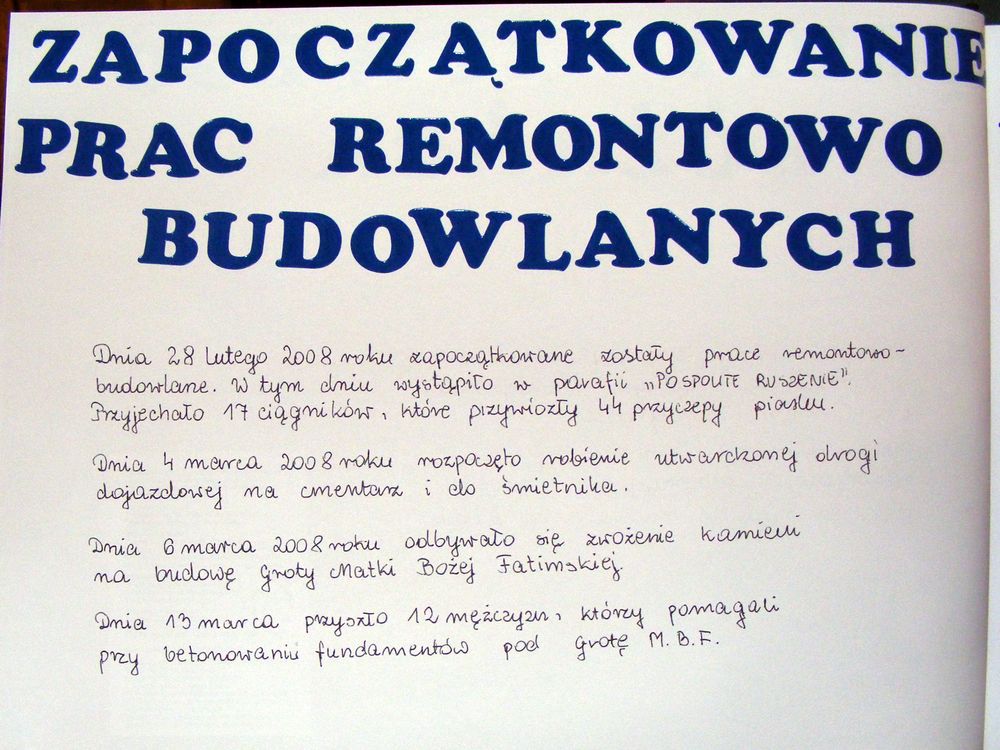 ZAPOCZĄTKOWANIE
PRAC REMONTOWO
BUDOWLANYCH
Dnia 28 lutego 2008 roku zapoczątkowane zostały prace remontowo-
budowlane. W tym dniu wystąpiło w parafii „POSPOLITE RUSZENIE”.
Przyjechało 17 ciągników, które przywiozły 44 przyczepy piasku.
Dnia 4 marca 2008 roku rozpoczęto robienie utwardzonej drogi
dojazdowej na cmentarz i do śmietnika.
Dnia 6 marca 2008 roku odbywało się zwożenie kamieni
na budowę Groty Matki Bożej Fatimskiej.
Dnia 13 marca przyszło 12 mężczyzn, którzy pomagali
przy betonowaniu fundamentów pod grotę M.B.F.